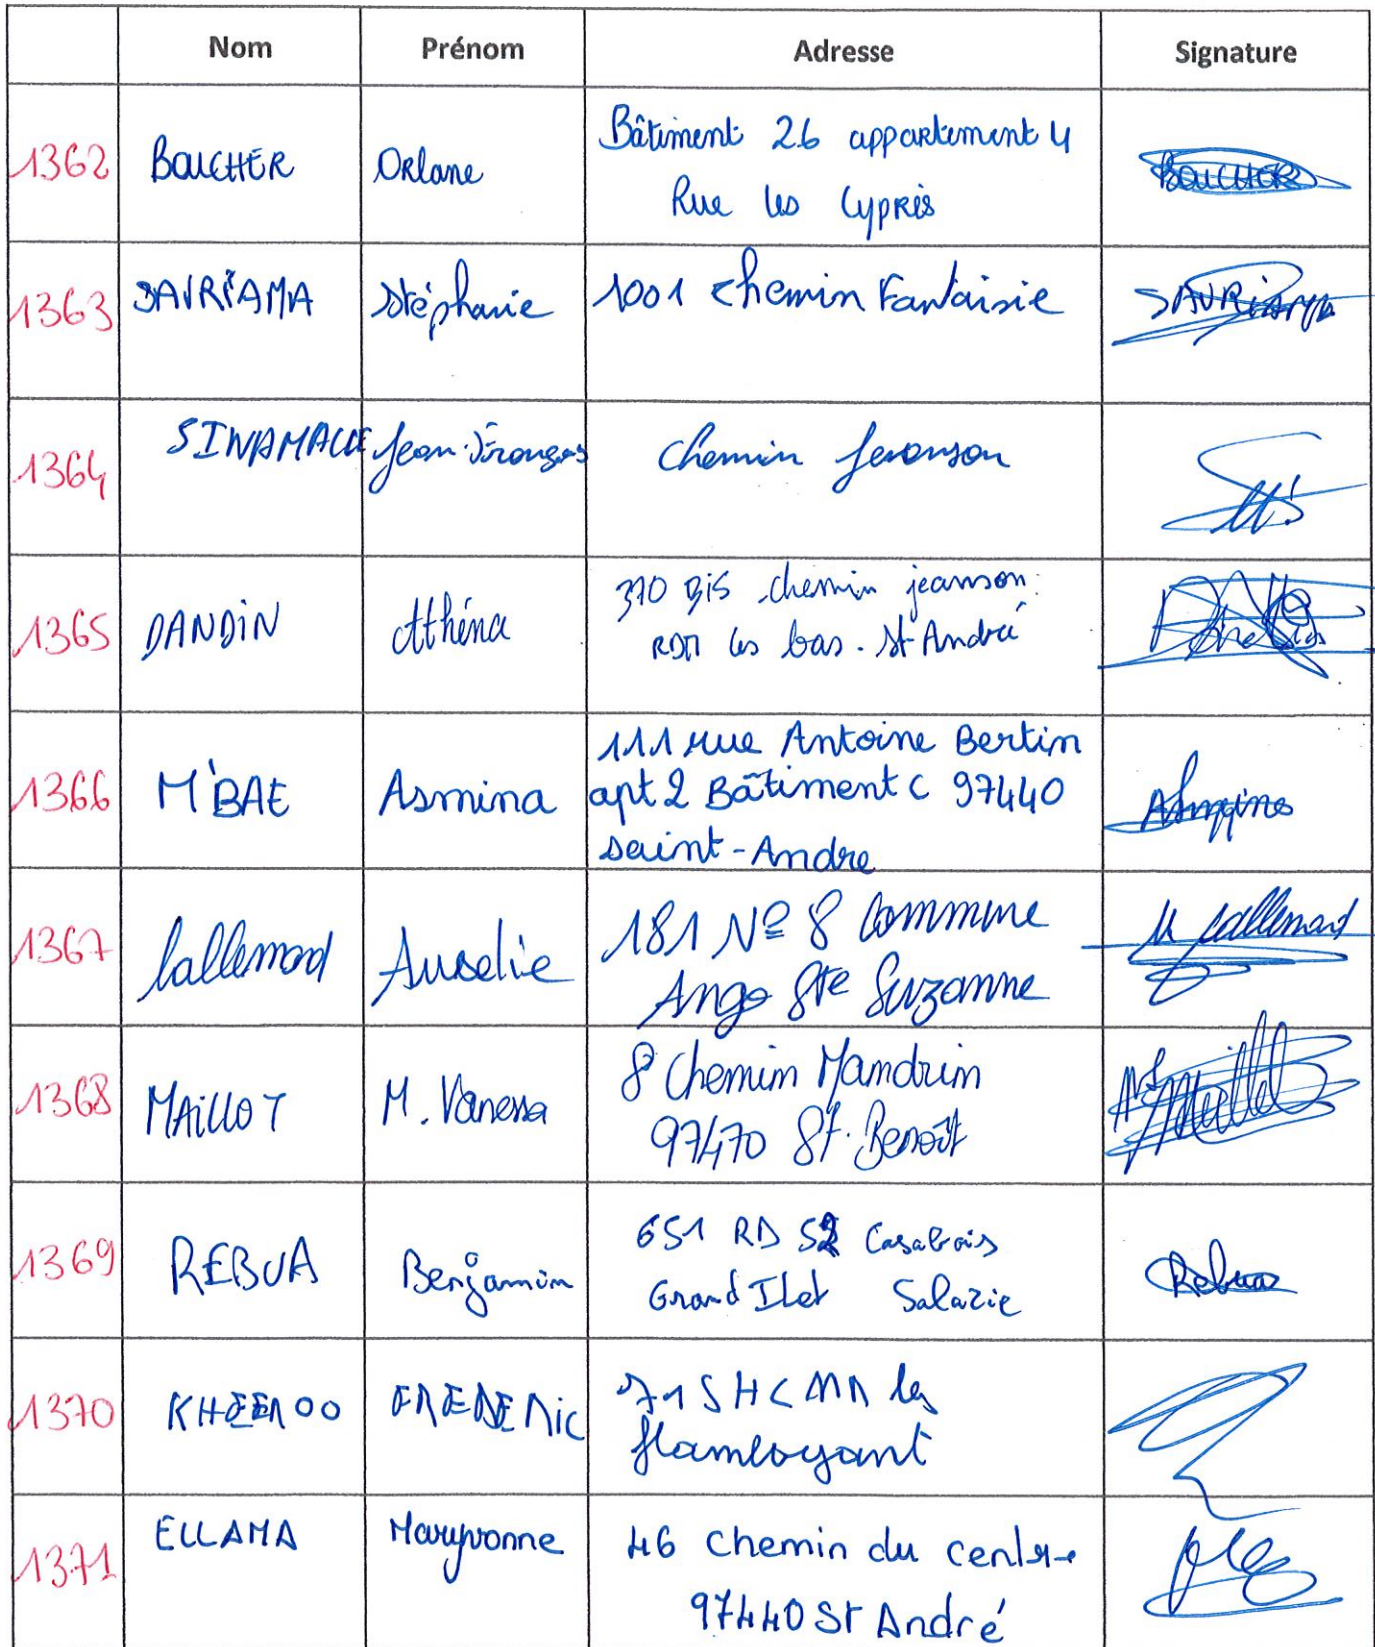 Nom Prénom Adresse Signature
1362 BOUCHER Orlane Bâtiment 26 appartement 4
Rue les Cyprès
BOUCHER
1363 SAVRIAMA Stéphanie 1001 chemin Fantaisie SAVRIAMA
1364 SINAMALE Jean-François chemin
1365 DANDIN Athéna 370 Bis chemin jeanson
les bas. St André
1366 M'BAE Asmina 111 rue Antoine Bertin
apt 2 Bâtiment C 97440
saint-Andre
1367 lallemand Aurelie 181 Nº 8 Commune
Ango Ste Suzanne
lallemand
1368 MAILLOT M. Vanessa 8 Chemin Mandrin
97470 St. Benoît
1369 REBUA Benjamin 651 RD 52 Casabois
Grand Ilet Salazie
Rebua
1370 KHEEROO FREDERIC les
flamboyant
1371 ELLAMA Maryvonne 46 chemin du centre
97440 St André